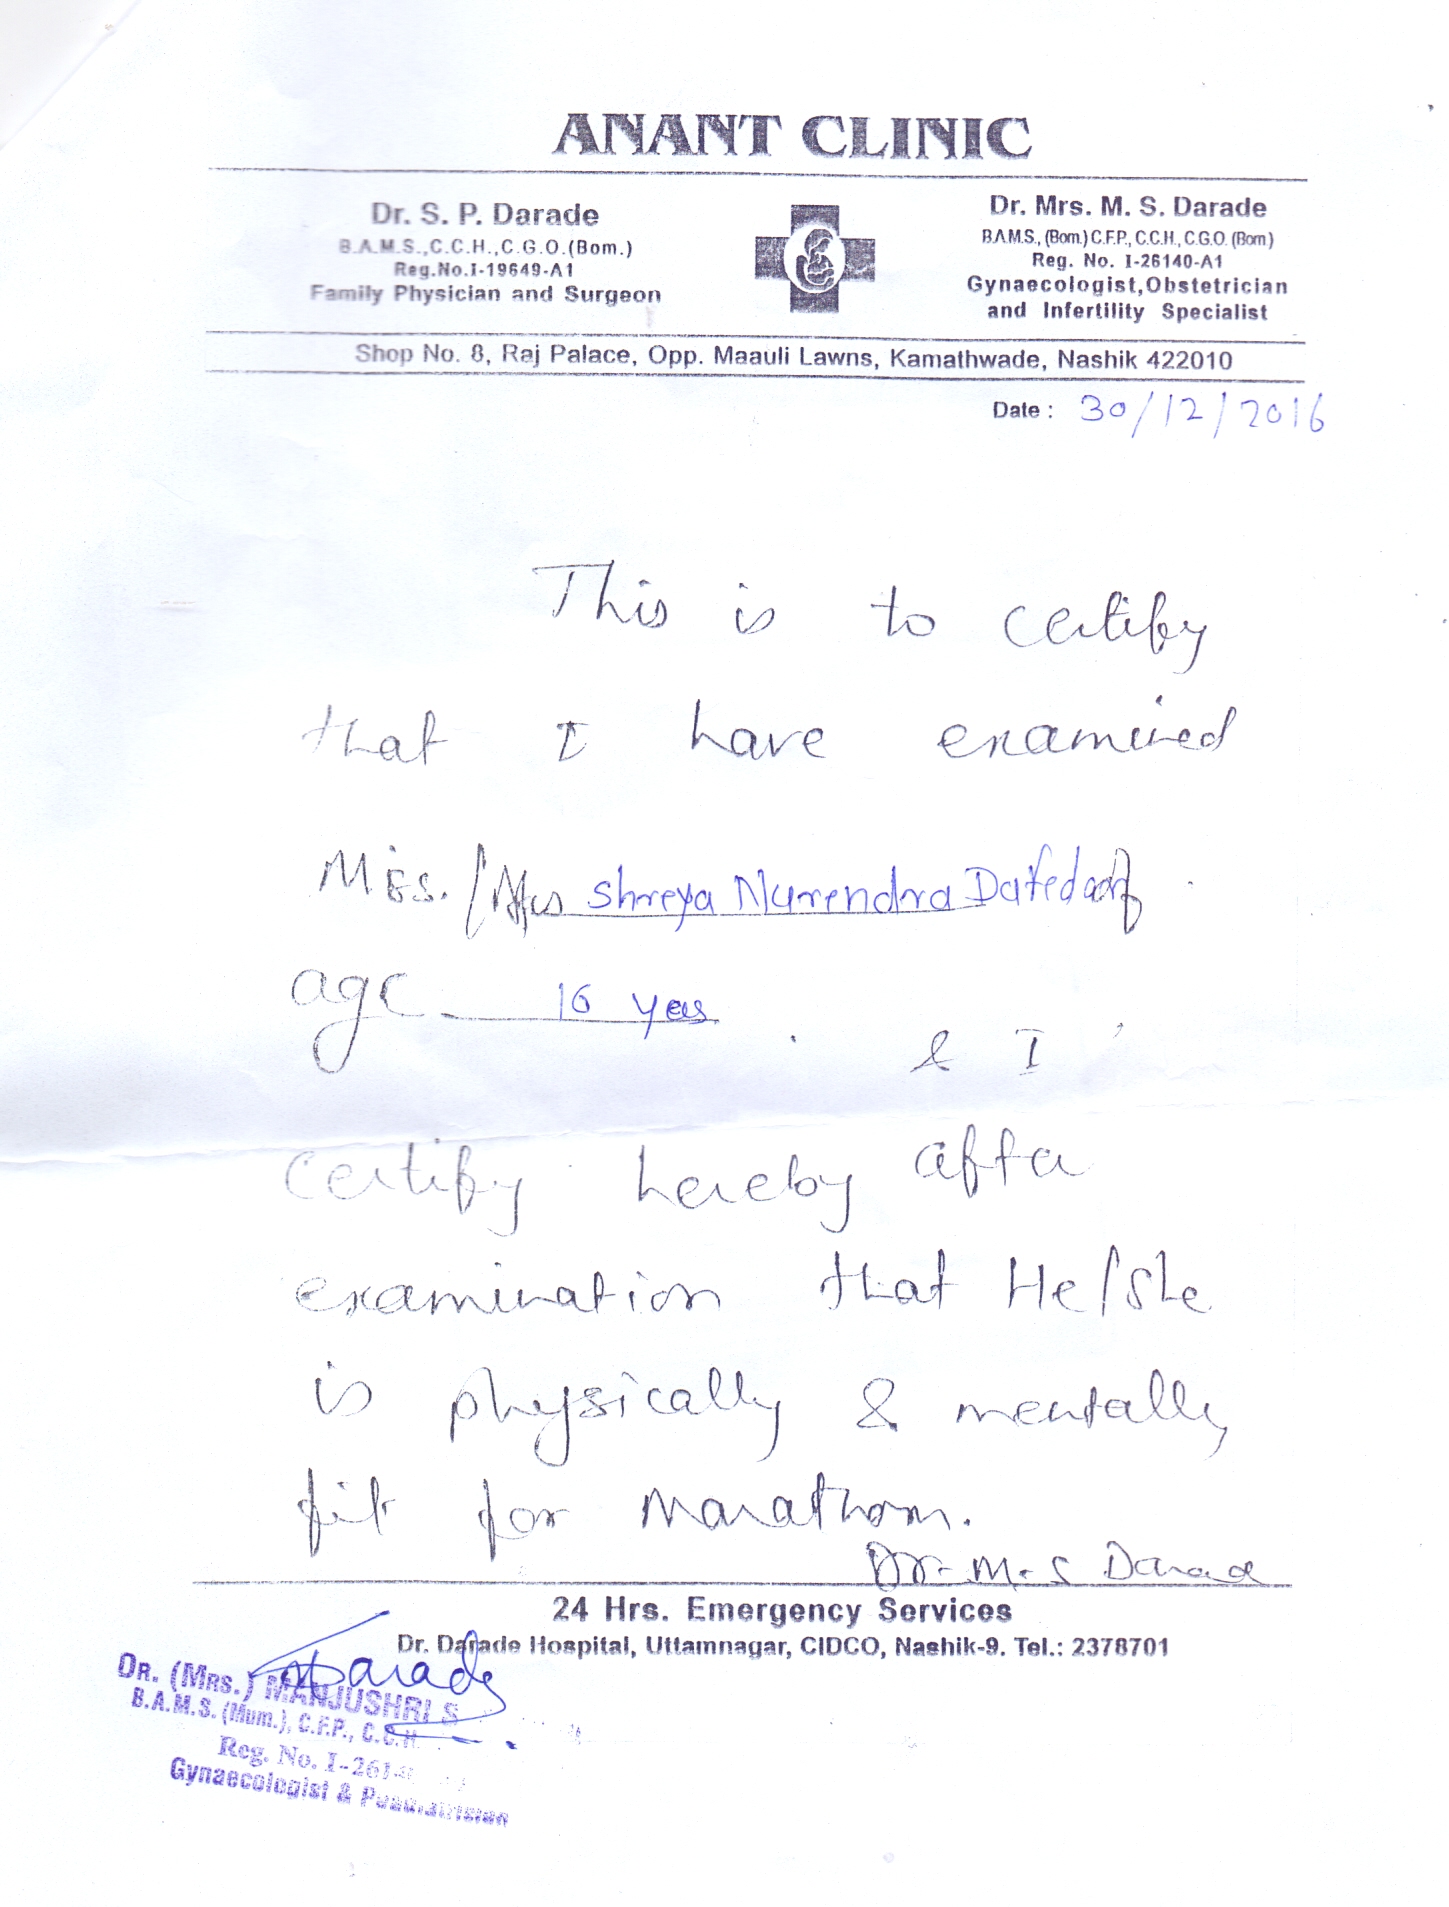 ANANT CLINIC
Dr. S. P. Darade
B.A.M.S.,C.C.H.,C.G.O.(Bom.)
Reg.No.I-19649-A1
Family Physician and Surgeon
Dr. Mrs. M. S. Darade
B.A.M.S., (Bom.) C.F.P., C.C.H., C.G.O. (Bom)
Reg. No. I-26140-A1
Gynaecologist,Obstetrician
and Infertility Specialist
Shop No. 8, Raj Palace, Opp. Maauli Lawns, Kamathwade, Nashik 422010
Date : 30/12/2016
This is to certify
that I have examined
Miss. / Shreya Narendra
age 16 yes
& I
certify hereby after
examination that He/She
is physically & mentally
fit for Marathon.
Dr. M. S Darade
24 Hrs. Emergency Services
Dr. Darade Hospital, Uttamnagar, CIDCO, Nashik-9. Tel.: 2378701
Darade
DR. (MRS.) MANJUSHRI S
B.A.M.S. (Mum.), C.F.P., C.C.H.
Reg. No. I-2614
Gynaecologist &